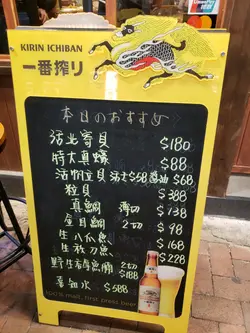 KIRIN ICHIBAN
一番搾り
本日のおすすめ
活北寄貝 $180
特大真蠔 $88
活帆立貝 活士$68 醬油$68
粒貝 $388
真鯛 薄切 $738
金目鯛 2切 $98
生八爪魚 $168
生秋刀魚 $228
2切
$188
$588
100% malt, first press beer.